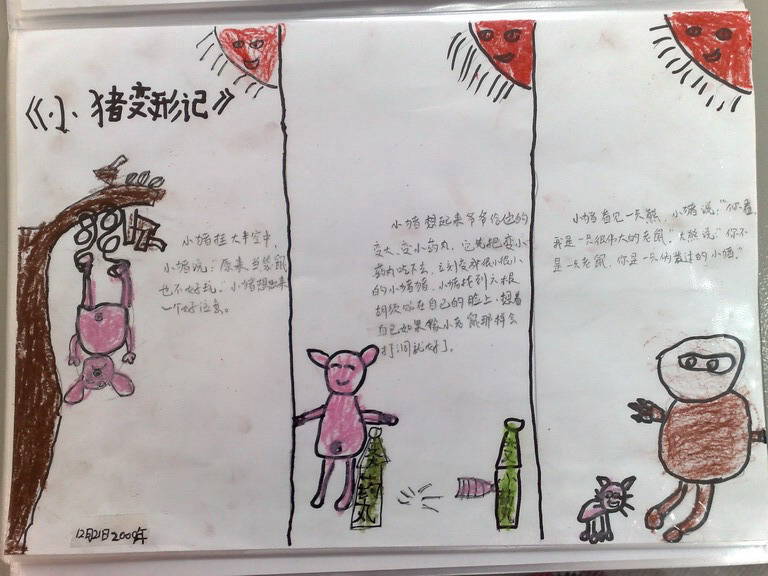 《小猪变形记》
小猪挂大半空中,
小猪说:"原来当袋鼠
也不好玩。"小猪想起来
一个好注意。
12月21日2009年
小猪想起来爷爷给他的
变大、变小药丸,它先把变小
药丸吃下去,立刻变成很小很小
的小猪猪,小猪找到六根
胡须
在自己的脸上,想着
自己如果像小老鼠那样会
打洞就好了。
变大药丸
变小药丸
小猪看见一只熊,小猪说:"你看,
我是一只很伟大的老鼠。"大熊说:"你不
是一只老鼠,你是一只伪装过的小猪。"